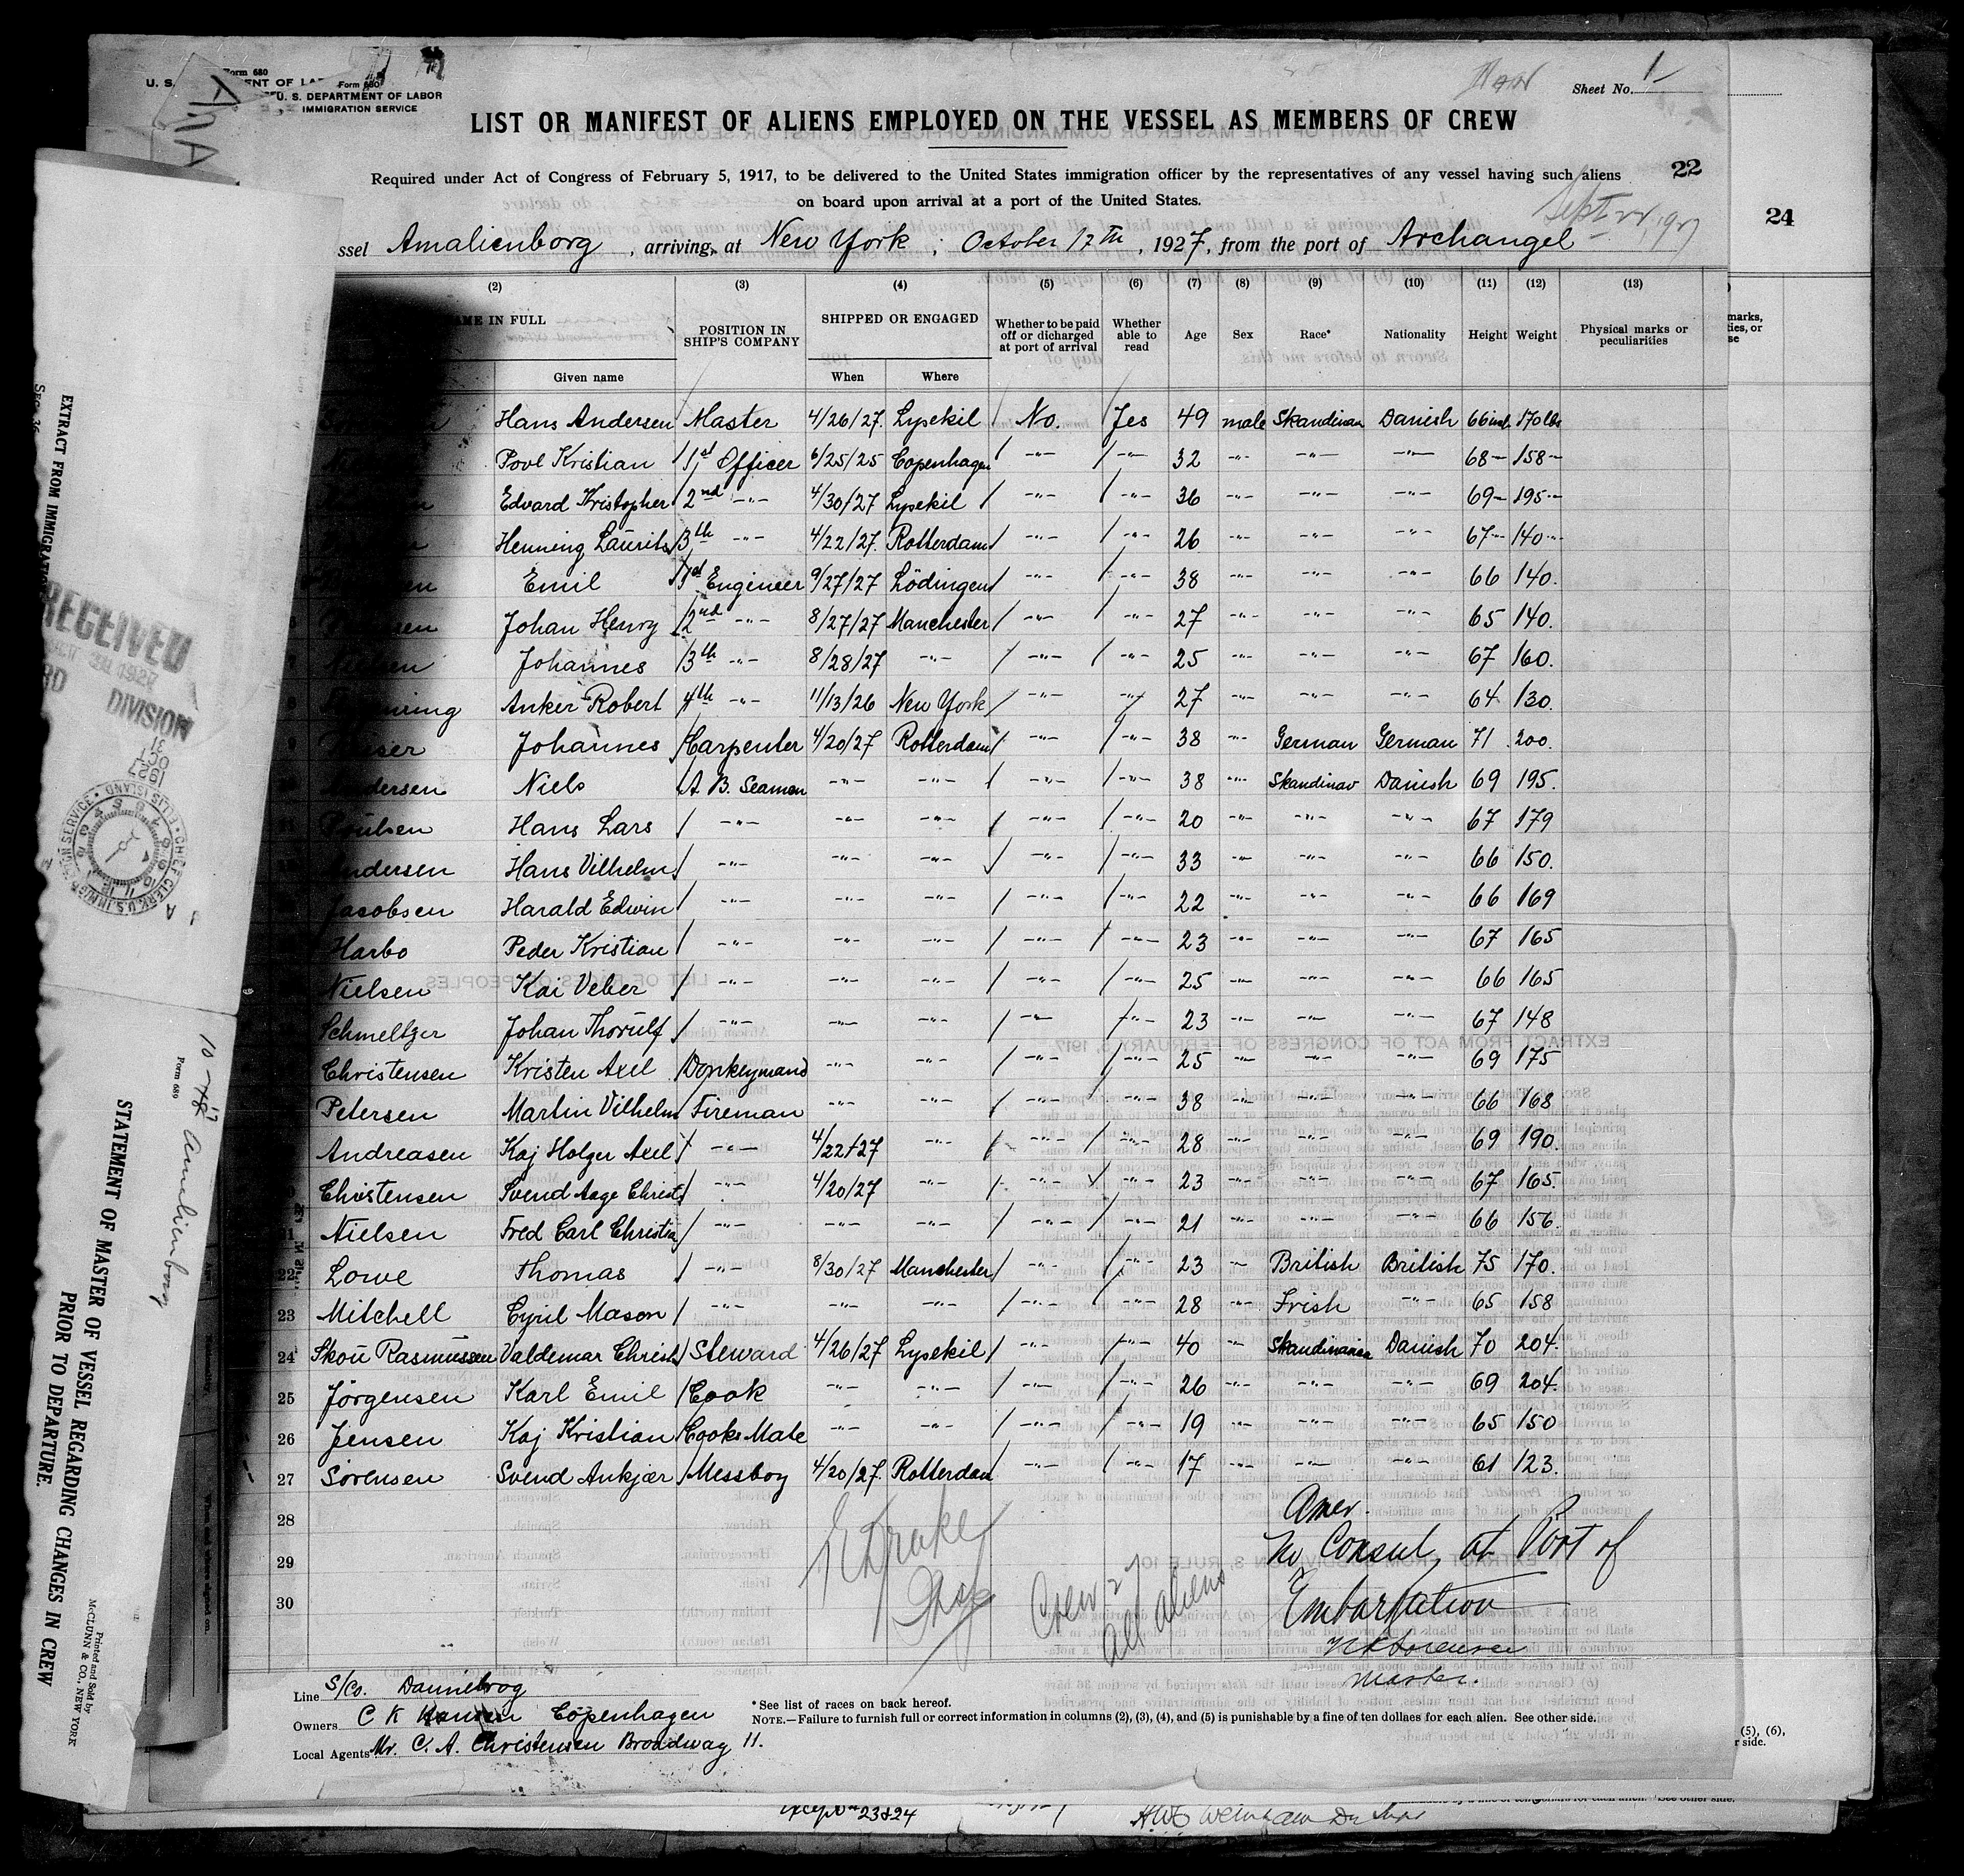 Form 680
U. S. DEPARTMENT OF LABOR
IMMIGRATION SERVICE
Sheet No. 1
LIST OR MANIFEST OF ALIENS EMPLOYED ON THE VESSEL AS MEMBERS OF CREW
22
24
Required under Act of Congress of February 5, 1917, to be delivered to the United States immigration officer by the representatives of any vessel having such aliens
on board upon arrival at a port of the United States.
ssel Amalienborg, arriving at New York, October 12th, 1927, from the port of Archangel
(2) (3) (4) (5) (6) (7) (8) (9) (10) (11) (12) (13)
ME IN FULL POSITION IN SHIP'S COMPANY SHIPPED OR ENGAGED Whether to be paid off or dicharged at port of arrival Whether able to read Age Sex Race* Nationality Height Weight Physical marks or peculiarities
Given name When Where
Hans Andersen Master 4/26/27. Lysekil No. Yes 49 male Skandinav Danish 66 inch. 170 lbs
Povl Kristian 1st Officer 6/25/25 Copenhagen -"- -"- 32 -"- -"- -"- 68 -"- 158 -"-
Edvard Kristopher 2nd -"- 4/30/27 Lysekil -"- -"- 36 -"- -"- -"- 69 -"- 195 -"-
Henning Laurits 3th -"- 4/22/27. Rotterdam -"- -"- 26 -"- -"- -"- 67 -"- 140 -"-
Emil 1st Engineer 9/27/27 Lödingen -"- -"- 38 -"- -"- -"- 66 140.
Johan Henry 2nd -"- 8/27/27 Manchester -"- -"- 27 -"- -"- -"- 65 140.
Johannes 3th -"- 8/28/27 -"- -"- -"- 25 -"- -"- -"- 67 160.
Anker Robert 4th -"- 11/13/26 New York -"- -"- 27 -"- -"- -"- 64 130.
Johannes Carpenter 4/20/27 Rotterdam -"- -"- 38 -"- German German 71 200.
Andersen Niels A. B. Seaman -"- -"- -"- -"- 38 -"- Skandinav Danish 69 195.
Poulsen Hans Lars -"- -"- -"- -"- -"- 20 -"- -"- -"- 67 179
Andersen Hans Vilhelm -"- -"- -"- -"- -"- 33 -"- -"- -"- 66 150.
Jacobsen Harald Edwin -"- -"- -"- -"- -"- 22 -"- -"- -"- 66 169
Harbo Peder Kristian -"- -"- -"- -"- -"- 23 -"- -"- -"- 67 165
Nielsen Kai Veber -"- -"- -"- -"- -"- 25 -"- -"- -"- 66 165
Schmeltzer Johan Thorulf -"- -"- -"- -"- -"- 23 -"- -"- -"- 67 148
Christensen Kristen Axel Donkeymand -"- -"- -"- -"- 25 -"- -"- -"- 69 175
Petersen Martin Vilhelm Fireman -"- -"- -"- -"- 38 -"- -"- -"- 66 168
Andreasen Kaj Holger Axel -"- 4/22/27 -"- -"- -"- 28 -"- -"- -"- 69 190.
Christensen Svend Aage Christ -"- 4/20/27 -"- -"- -"- 23 -"- -"- -"- 67 165
Nielsen Fred Carl Christia -"- -"- -"- -"- -"- 21 -"- -"- -"- 66 156.
22 Lowe Thomas -"- 8/30/27 Manchester -"- -"- 23 -"- British British 75 170.
23 Mitchell Cyril Mason -"- -"- -"- -"- -"- 28 -"- Irish -"- 65 158
24 Skou Rasmussen Valdemar Christ Steward 4/26/27 Lysekil -"- -"- 40 -"- Skandinavia Danish 70 204.
25 Jørgensen Karl Emil Cook -"- -"- -"- -"- 26 -"- -"- -"- 69 204.
26 Jensen Kaj Kristian Cooks Mate -"- -"- -"- -"- 19 -"- -"- -"- 65 150
27 Sørensen Svend Ankjær Messboy 4/20/27. Rotterdam -"- -"- 17 -"- -"- -"- 61 123.
28
29
30
Crew 27
all aliens
Amer.
No Consul, at Port of
Embarkation
Master.
Line S/Co. Dannebrog
Owners C K Hansen Copenhagen
Local Agents Mr. C. A. Christensen Broadway 11.
*See list of races on back hereof.
NOTE.—Failure to furnish full or correct information in columns (2), (3), (4), and (5) is punishable by a fine of ten dollaes for each alien. See other side.
EXTRACT FROM IMMIGRATION
RECEIVED
DIVISION
CHIEF CLERK, U.S. IMMIG
ELLIS ISLAND
Form 689
Amalienborg
STATEMENT OF MASTER OF VESSEL REGARDING CHANGES IN CREW
PRIOR TO DEPARTURE.
Printed and Sold by
McCLUNN & CO., NEW YORK
23 & 24